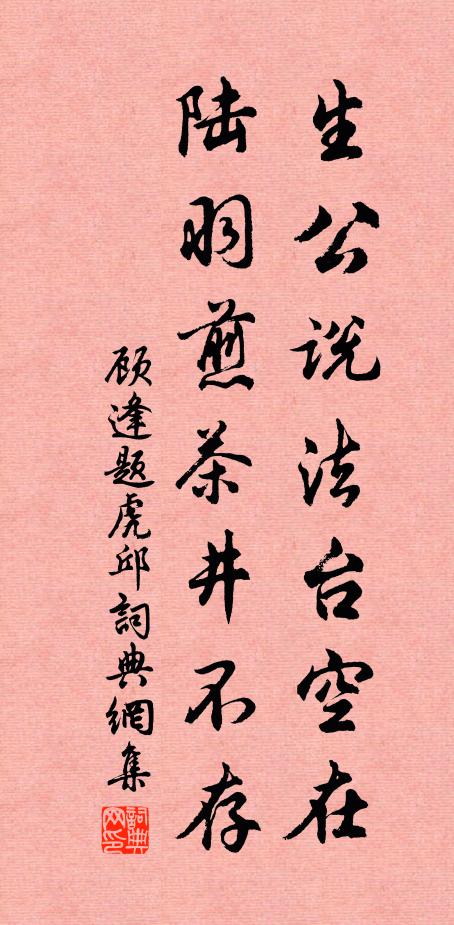 生公说法台空在
陆羽煎茶井不存
顾逢题虎邱詞典網集
詞典网印